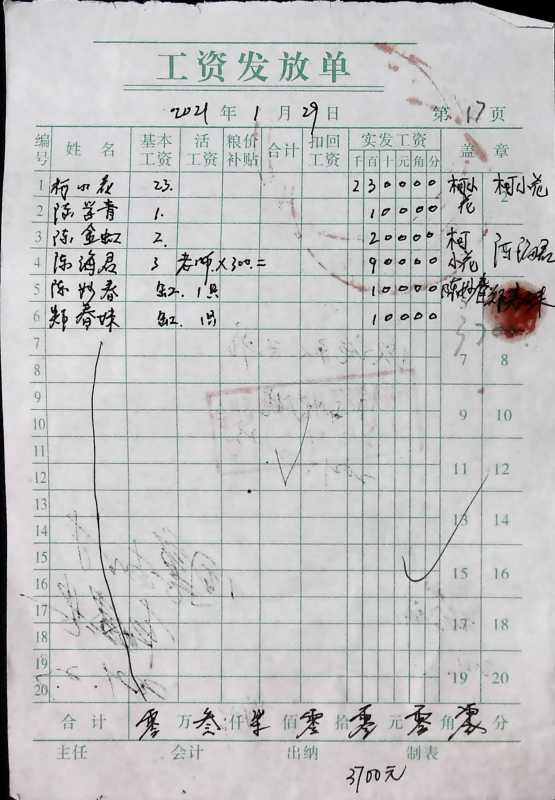 工资发放单
2021年1月29日 第17页
编号 姓名 基本工资 活工资 粮价补贴 合计 扣回工资 实发工资 盖章
千百十元角分
1 柯小花 23. 230000 柯小花 柯小花 2
2 陈学青 1. 10000
3 陈金虹 2. 20000 柯小花 4
4 陈海君 3 老师×300.= 90000 陈海君
5 陈妙春 缸. 1只 10000 陈妙春
6 郑春妹 缸. 1只 10000 郑春妹
7 7 8
8
9 9 10
10
11 11 12
12
13 13 14
14
15 15 16
16
17 17 18
18
19 19 20
20
合计 零万叁仟柒佰零拾零元零角零分
主任 会计 出纳 制表
3700元